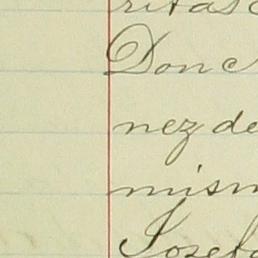 ritas
Don
nez de
mism
Josef